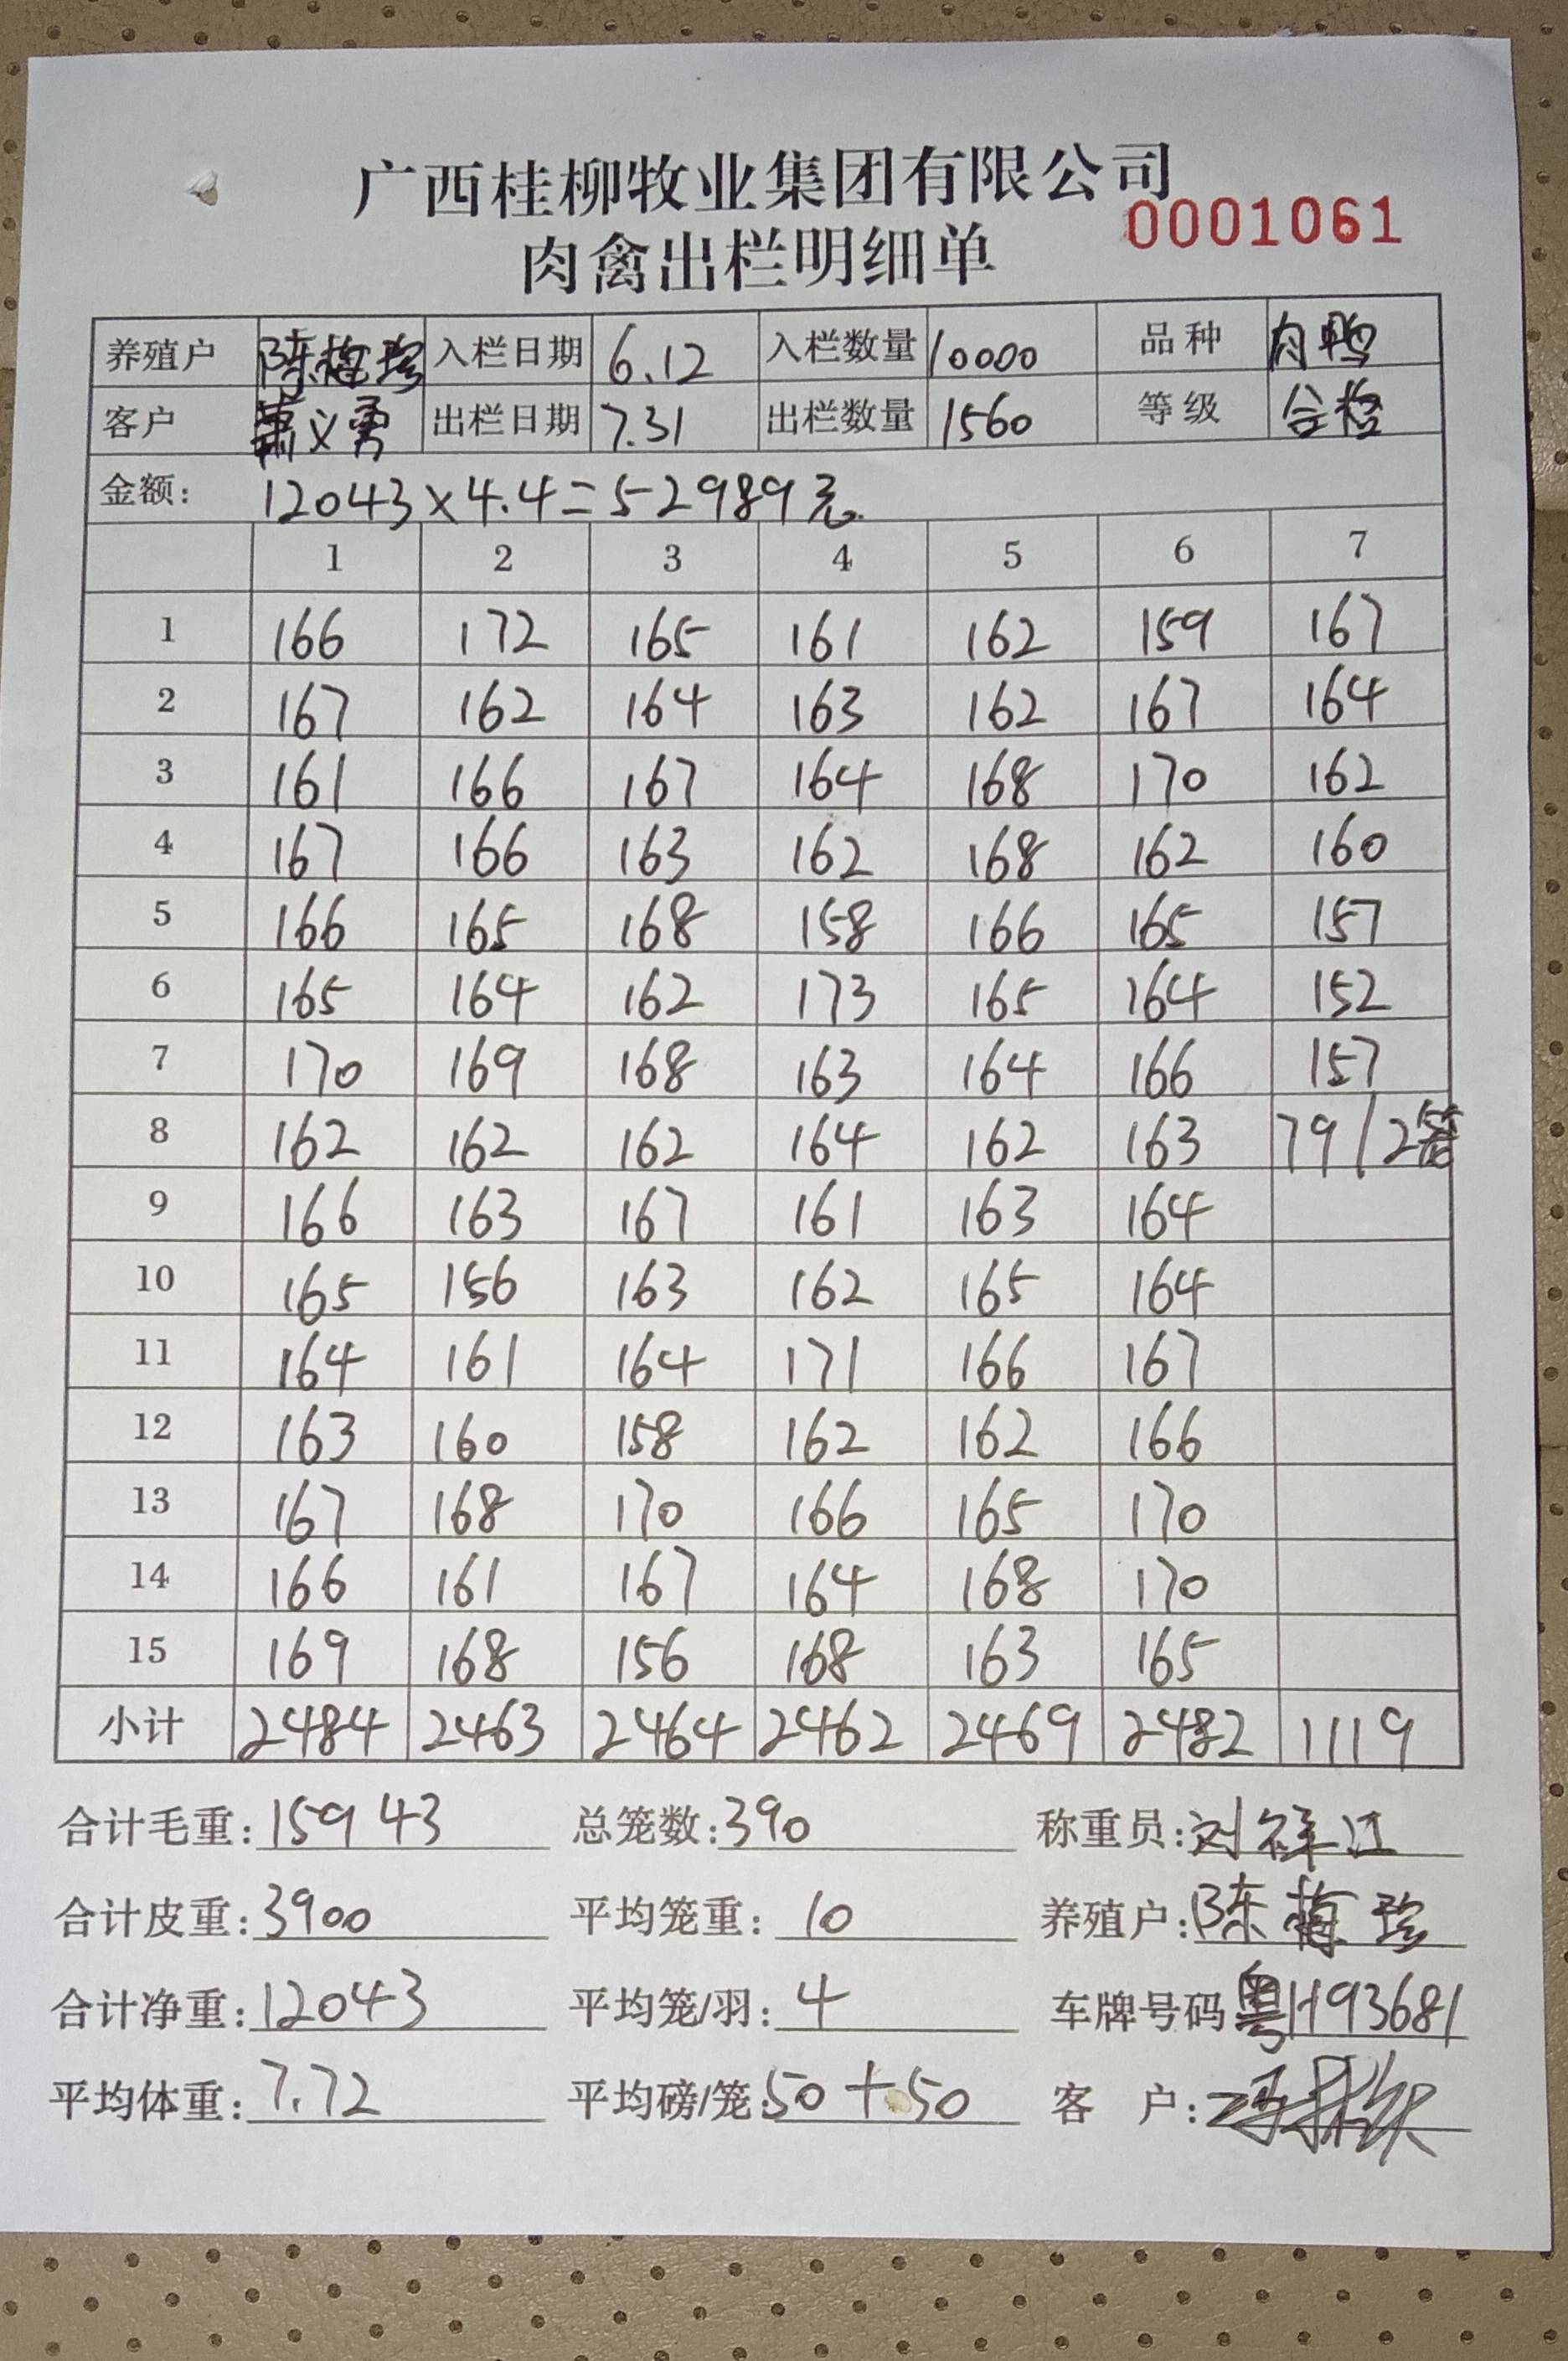 广西桂柳牧业集团有限公司
0001061
肉禽出栏明细单
养殖户 陈梅珍 入栏日期 6.12 入栏数量 10000 品种 肉鸭
客户 萧义勇 出栏日期 7.31 出栏数量 1560 等级 合格
金额: 12043×4.4=52989元
1 2 3 4 5 6 7
1 166 172 165 161 162 159 167
2 167 162 164 163 162 167 164
3 161 166 167 164 168 170 162
4 167 166 163 162 168 162 160
5 166 165 168 158 166 165 157
6 165 164 162 173 165 164 152
7 170 169 168 163 164 166 157
8 162 162 162 164 162 163 79/2
9 166 163 167 161 163 164
10 165 156 163 162 165 164
11 164 161 164 171 166 167
12 163 160 158 162 162 166
13 167 168 170 166 165 170
14 166 161 167 164 168 170
15 169 168 156 168 163 165
小计 2484 2463 2464 2462 2469 2482 1119
合计毛重:15943 总笼数:390 称重员:刘祥江
合计皮重:3900 平均笼重: 10 养殖户:陈梅珍
合计净重:12043 平均笼/羽: 4 车牌号码 粤H93681
平均体重:7.72 平均磅/笼:50+50 客 户: